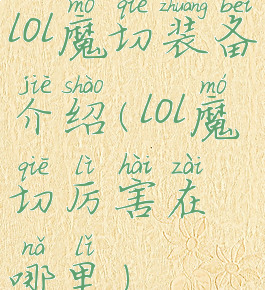 mó qiē zhuāng bèi
lol魔切装备
jiè shào mó
介绍(lol魔
qiē lì hài zài
切厉害在
nǎ lǐ
哪里)